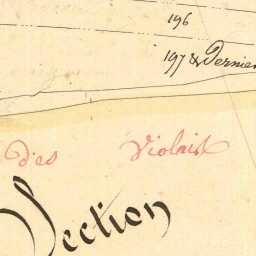 196
197 & Dernier
des Violais
Section